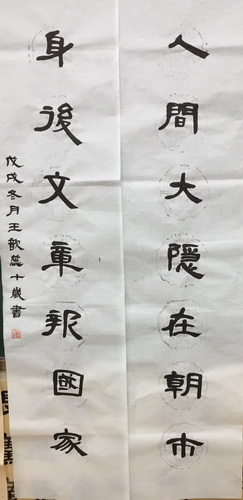 人間大隱在朝市
身後文章報國家
戊戌冬月王歆蕊十歲書